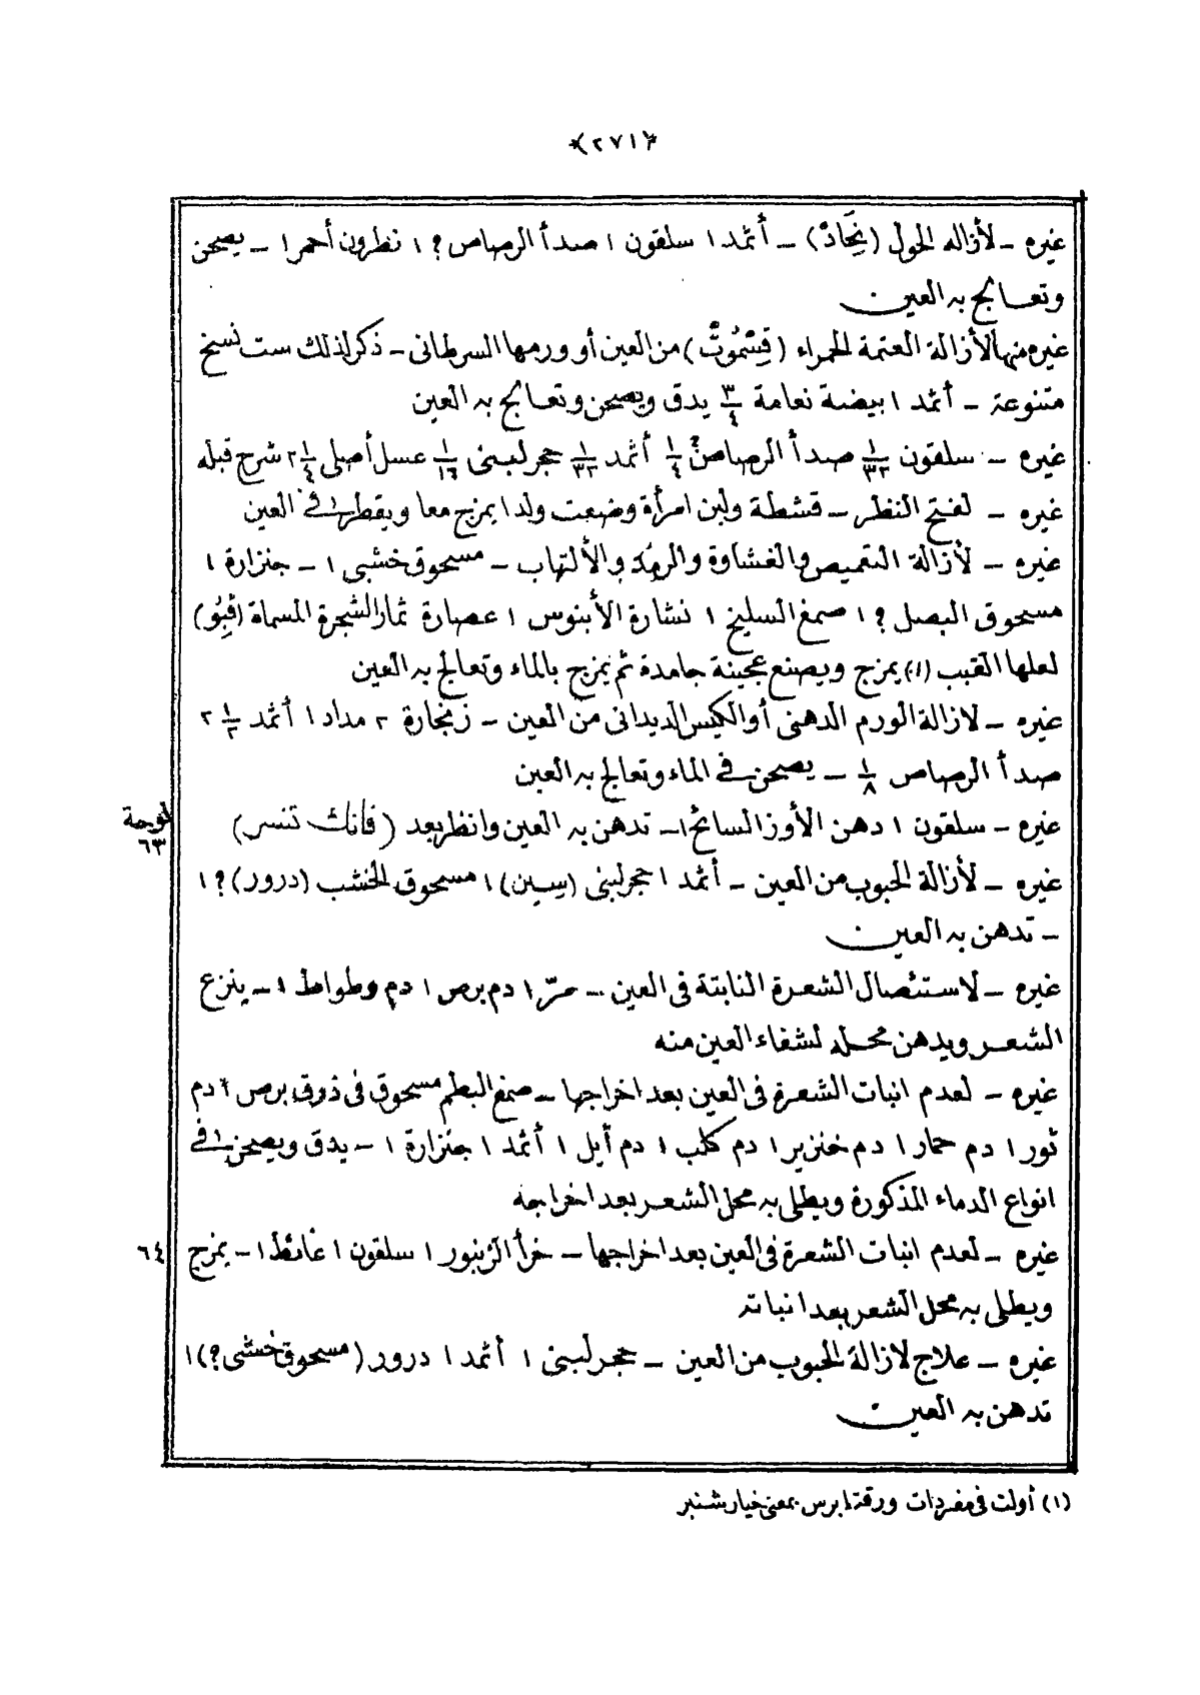 ﴿٢٧١﴾
غيره – لأزاله الحول (نِحَاذْ) – أثمد ١ سلقون ١ صدأ الرصاص ؟ ١ نطرون أحمر ١ – يصحن
وتعالج به العين
غيره منها لأزالة العتمة الحمراء (قِسْمُوتْ) من العين أو ورمها السرطانى – ذكر لذلك ست نسخ
متنوعة – أثمد ١ بيضة نعامة ٣/٤ يدق ويصحن وتعالج به العين
غيره – سلقون ١/٣٢ صدأ الرصاص ؟ ١/٤ أثمد ١/٣٢ حجر لبنى ١/١٦ عسل أصلى ٢ ١/٤ شرح قبله
غيره – لفتح النظر – قشطة ولبن امرأة وضعت ولدا يمزج معا ويقطر فى العين
غيره – لأزالة التعميص والغشاوة والرمد والألتهاب – مسحوق خشبى ١ – جنزارة ١
مسحوق البصل ؟ ١ صمغ السليخ ١ نشارة الأبنوس ١ عصارة ثمار الشجرة المسماة (قِبُو)
لعلها القبب (١) يمزج ويصنع عجينة جامدة ثم يمزج بالماء وتعالج به العين
غيره – لازالة الورم الدهنى أو الكيس الديدانى من العين – زنجارة ٢ مداد ١ أثمد ٢ ١/٢
صدأ الرصاص ١/٨ – يصحن فى الماء وتعالج به العين
غيره – سلقون ١ دهن الأوز السائح ١ – تدهن به العين وانظر بعد (فانك تنسر)
لوحة
٦٣
غيره – لأزالة الحبوب من العين – أثمد ١ حجر لبنى (سِين) ١ مسحوق الخشب (درور) ؟ ١
– تدهن به العين
غيره – لاستئصال الشعرة النابتة فى العين – مرّ ١ دم برص ١ دم وطواط ١ – ينزع
الشعر ويدهن محله لشفاء العين منه
غيره – لعدم انبات الشعرة فى العين بعد اخراجها – صمغ البطم مسحوق فى ذوق برص ١ دم
ثور ١ دم حمار ١ دم خنزير ١ دم كلب ١ دم أيل ١ أثمد ١ جنزارة ١ – يدق ويصحن فى
انواع الدماء المذكورة ويطلى به محل الشعر بعد اخراجه
غيره – لعدم انبات الشعرة فى العين بعد اخراجها – خرأ الزنبور ١ سلقون ١ غائط ١ – يمزج
٦٤
ويطلى به محل الشعر بعد انباته
غيره – علاج لازالة الحبوب من العين – حجر لبنى ١ أثمد ١ درور (مسحوق خشبى ؟) ١
تدهن به العين
(١) أولت فى مفردات ورقة ابرس بمعنى خيار شنبر